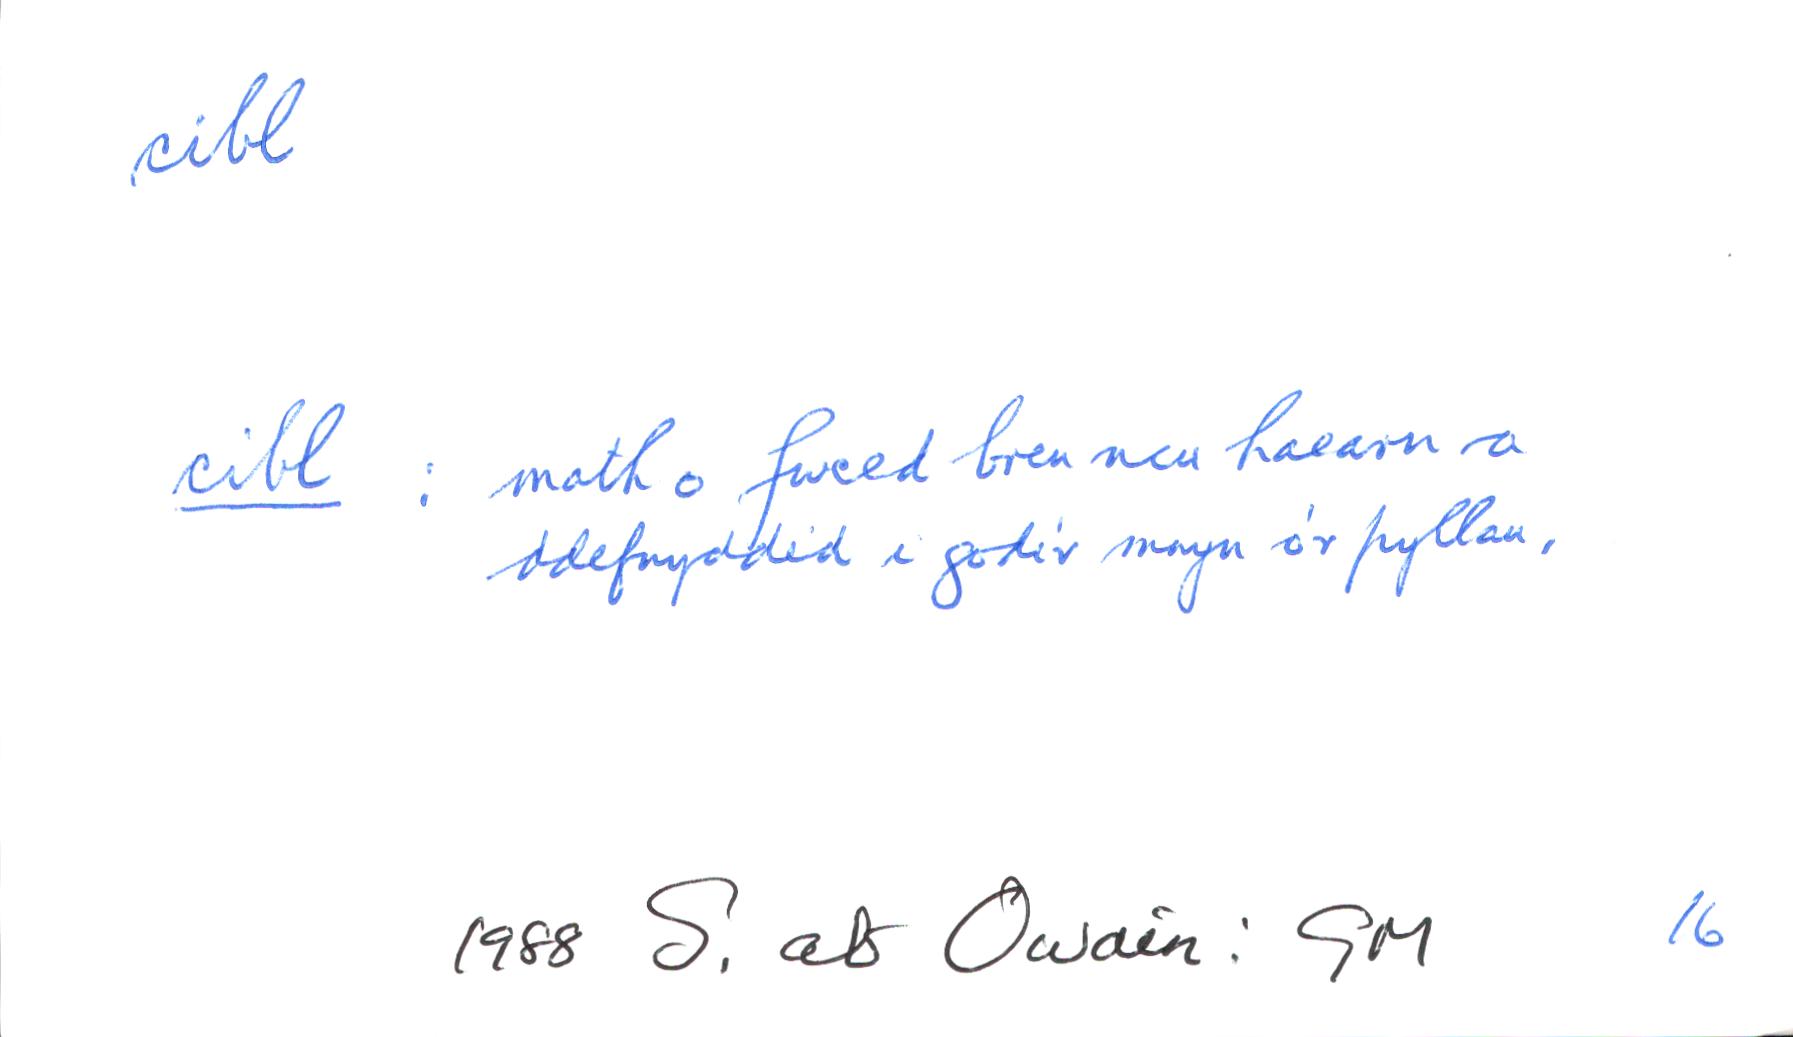 cibl
cibl : math o fwced bren neu haearn a
ddefnyddid i godi'r mwyn o'r pyllau.
1988 S. ab Owain: GM 16